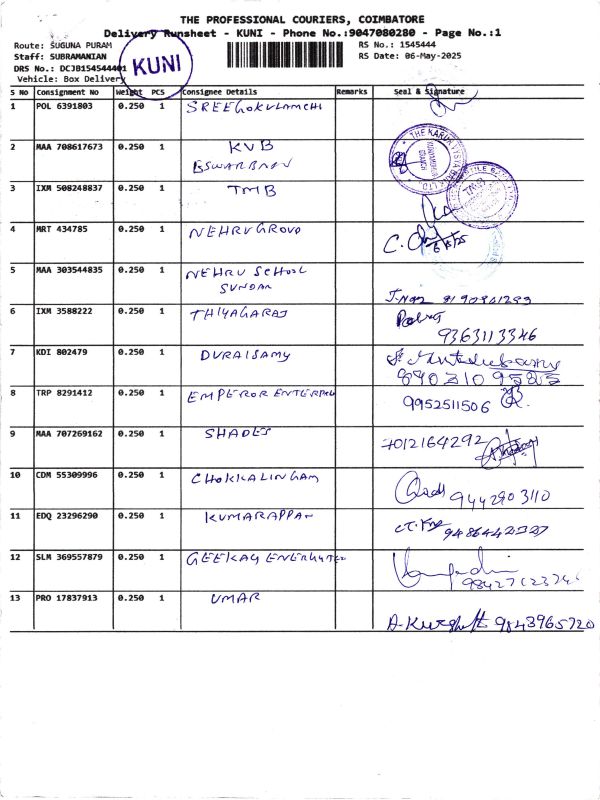 THE PROFESSIONAL COURIERS, COIMBATORE
Delivery Runsheet - KUNI - Phone No.:9047080280 - Page No.:1
Route: SUGUNA PURAM
Staff: SUBRAMANIAN
DRS No.: DCJB154544401
Vehicle: Box Delivery
KUNI
RS No.: 1545444
RS Date: 06-May-2025
S No Consignment No Weight PCS Consignee Details Remarks Seal & Signature
1 POL 6391803 0.250 1 SREEGOKULAMCHI
2 MAA 708617673 0.250 1 KVB
ESWARBAN
THE KARUR VYSYA BANK LTD.
3 IXM 508248837 0.250 1 TMB
TMB
4 MRT 434785 0.250 1 NEHRUGROUP
6/5/25
5 MAA 303544835 0.250 1 NEHRU SCHOOL
SUNDAR
6 IXM 3588222 0.250 1 THIYAGARAJ
9363113346
7 KDI 802479 0.250 1 DURAISAMY
8 TRP 8291412 0.250 1 EMPEROR ENTERPRI
9952511506
9 MAA 707269162 0.250 1 SHADES
7012164292
10 CDM 55309996 0.250 1 CHOKKALINGAM
9442903110
11 EDQ 23296290 0.250 1 KUMARAPPAN
12 SLM 369557879 0.250 1 GEEKAY ENERGYTEC
13 PRO 17837913 0.250 1 UMAR
9843965720